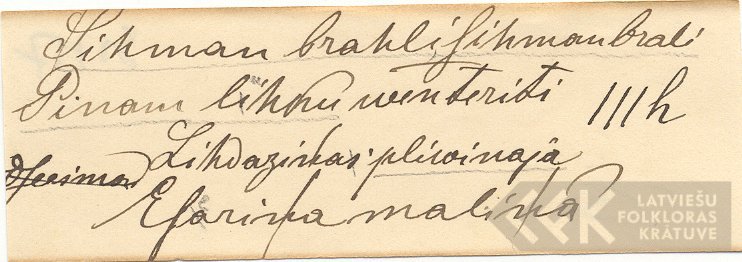 Sihman brahli, sihman brali
Pinam lihku wenteriti
111h
Lihdaziņas pliwinajā
Esariņa maliņā
LATVIEŠU
FOLKLORAS
KRĀTUVE